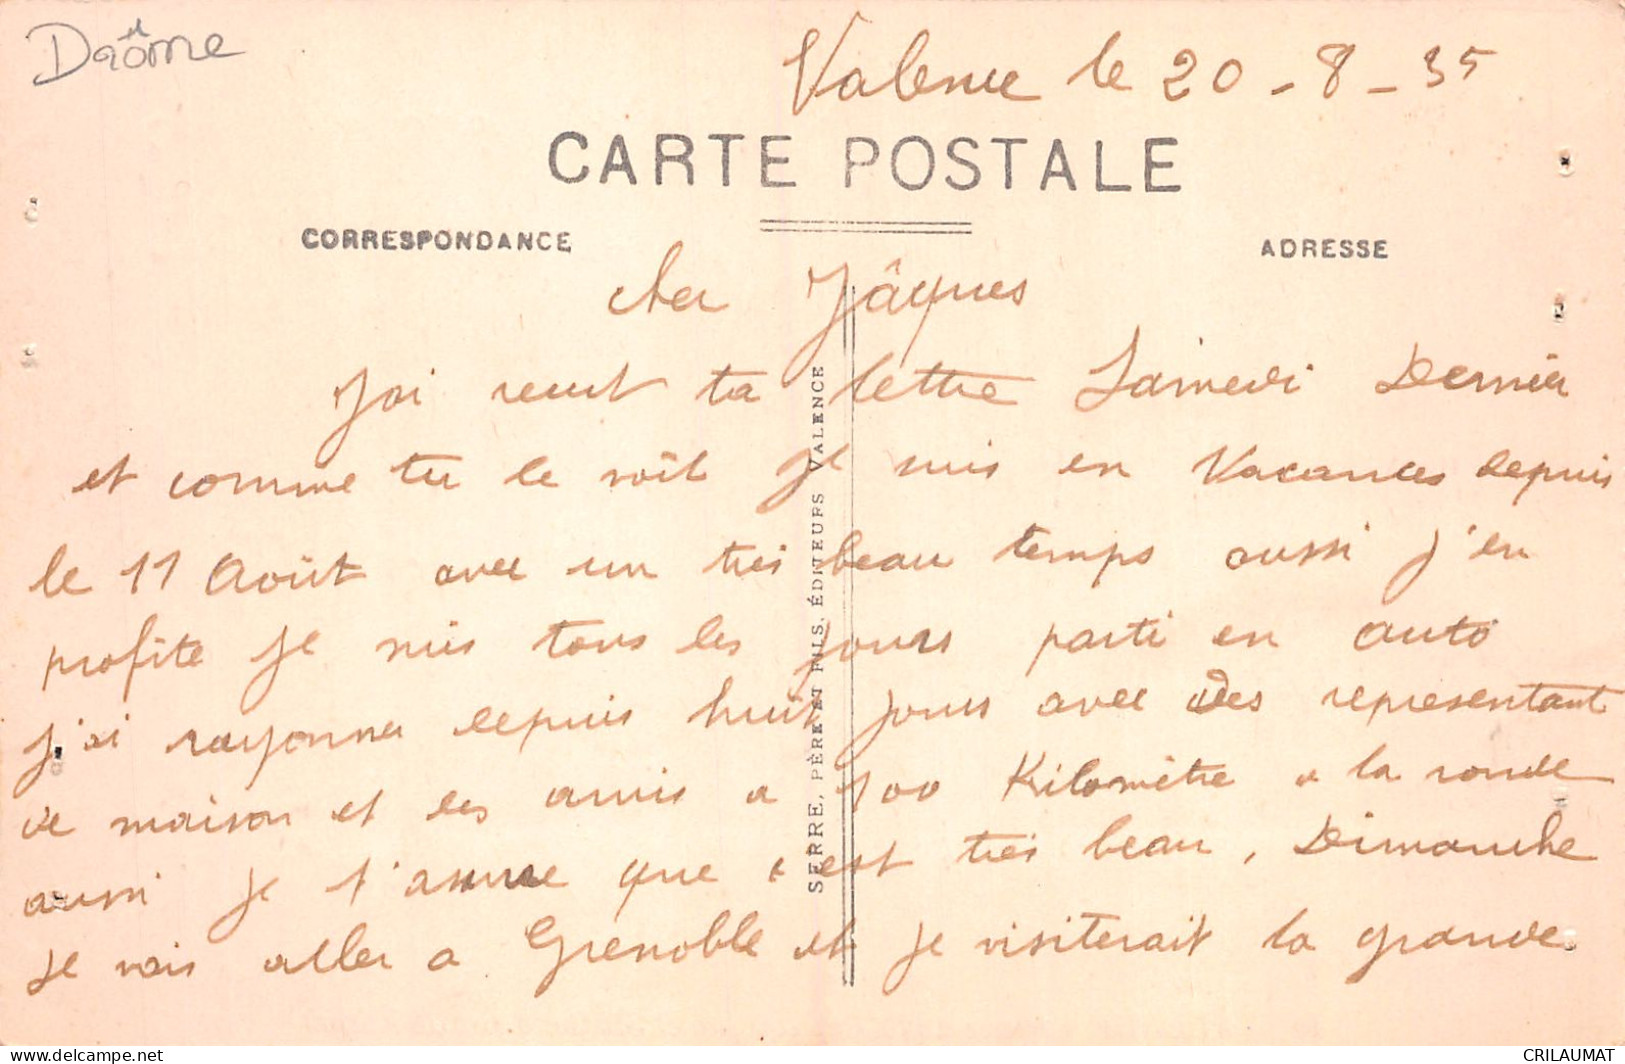 Drôme
Valence le 20-8-35
CARTE POSTALE
CORRESPONDANCE
ADRESSE
cher Jâques
J'ai reçut ta lettre Samedi Dernier
et comme tu le voit je suis en Vacances depuis
le 11 Août avec un très beau temps aussi j'en
profite je suis tous les jours parti en auto
j'ai rayonner depuis huit jours avec des representant
de maison et des amis a 100 Kilomètre a la ronde
aussi je t'assure que c'est très beau, Dimanche
je vais aller a Grenoble et je visiterait la grande
SERRE, PÈRE ET FILS, ÉDITEURS VALENCE
www.delcampe.net
CRILAUMAT